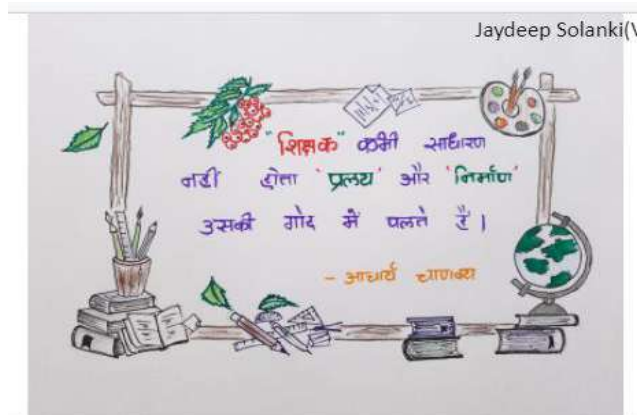 Jaydeep Solanki(V
"शिक्षक" कभी साधारण
नहीं होता 'प्रलय' और 'निर्माण'
उसकी गोद में पलते है।
- आचार्य चाणक्य